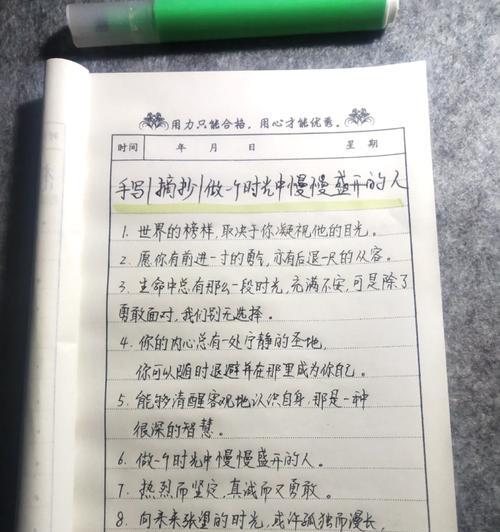 用力只能合格，用心才能优秀。
时间 年 月 日 星 期
手写|摘抄|做一个时光中慢慢盛开的人
1. 世界的榜样,取决于你凝视他的目光。
2. 愿你有前进一寸的勇气,亦有后退一尺的从容。
3. 生命中总有那么一段时光,充满不安,可是除了
勇敢面对,我们别无选择。
4. 你的内心总有一处宁静的圣地,
你可以随时退避并在那里成为你自己。
5. 能够清醒客观地认识自身,那是一种
很深的智慧。
6. 做一个时光中慢慢盛开的人。
7. 热烈而坚定,真诚而又勇敢。
8. 向未来张望的时光,或许孤独而漫长,